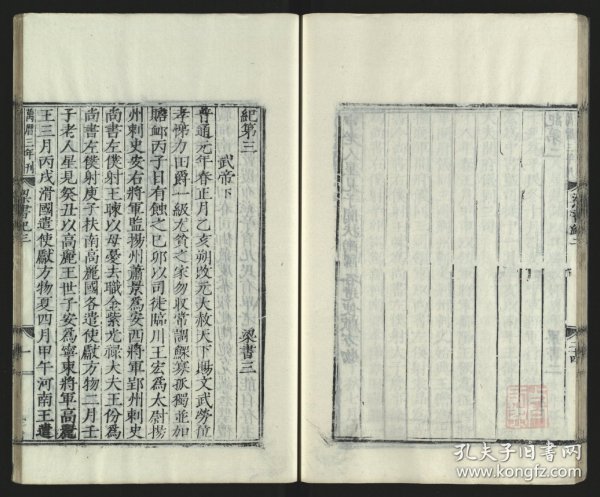 紀第三 梁書三
武帝下
普通元年春正月乙亥朔改元大赦天下賜文武勞位
孝悌力田爵一級尤貧之家勿收常調鰥寡孤獨並加
贍䘏丙子日有蝕之己卯以司徒臨川王宏為太尉揚
州刺史安右將軍監揚州蕭景為安西將軍郢州刺史
尚書左僕射王暕以母憂去職金紫光祿大夫王份為
尚書左僕射庚子扶南高麗國各遣使獻方物二月壬
子老人星見癸丑以高麗王世子安為寧東將軍高麗
王三月丙戌滑國遣使獻方物夏四月甲午河南王遣
萬曆三年刊
梁書紀三
孔夫子旧书网
www.kongfz.com